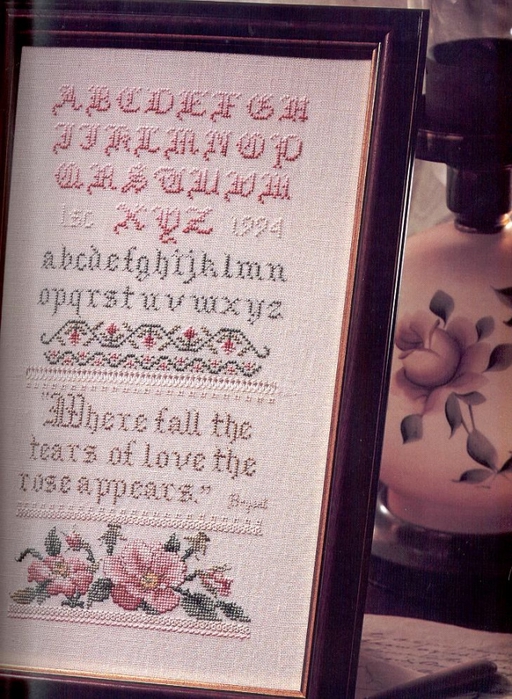 ABCDEFGH
IJKLMNOP
QRSTUVW
lsc XYZ 1994
abcdefghijklmn
opqrstuvwxyz
"Where fall the
tears of love the
rose appears."
Bryant